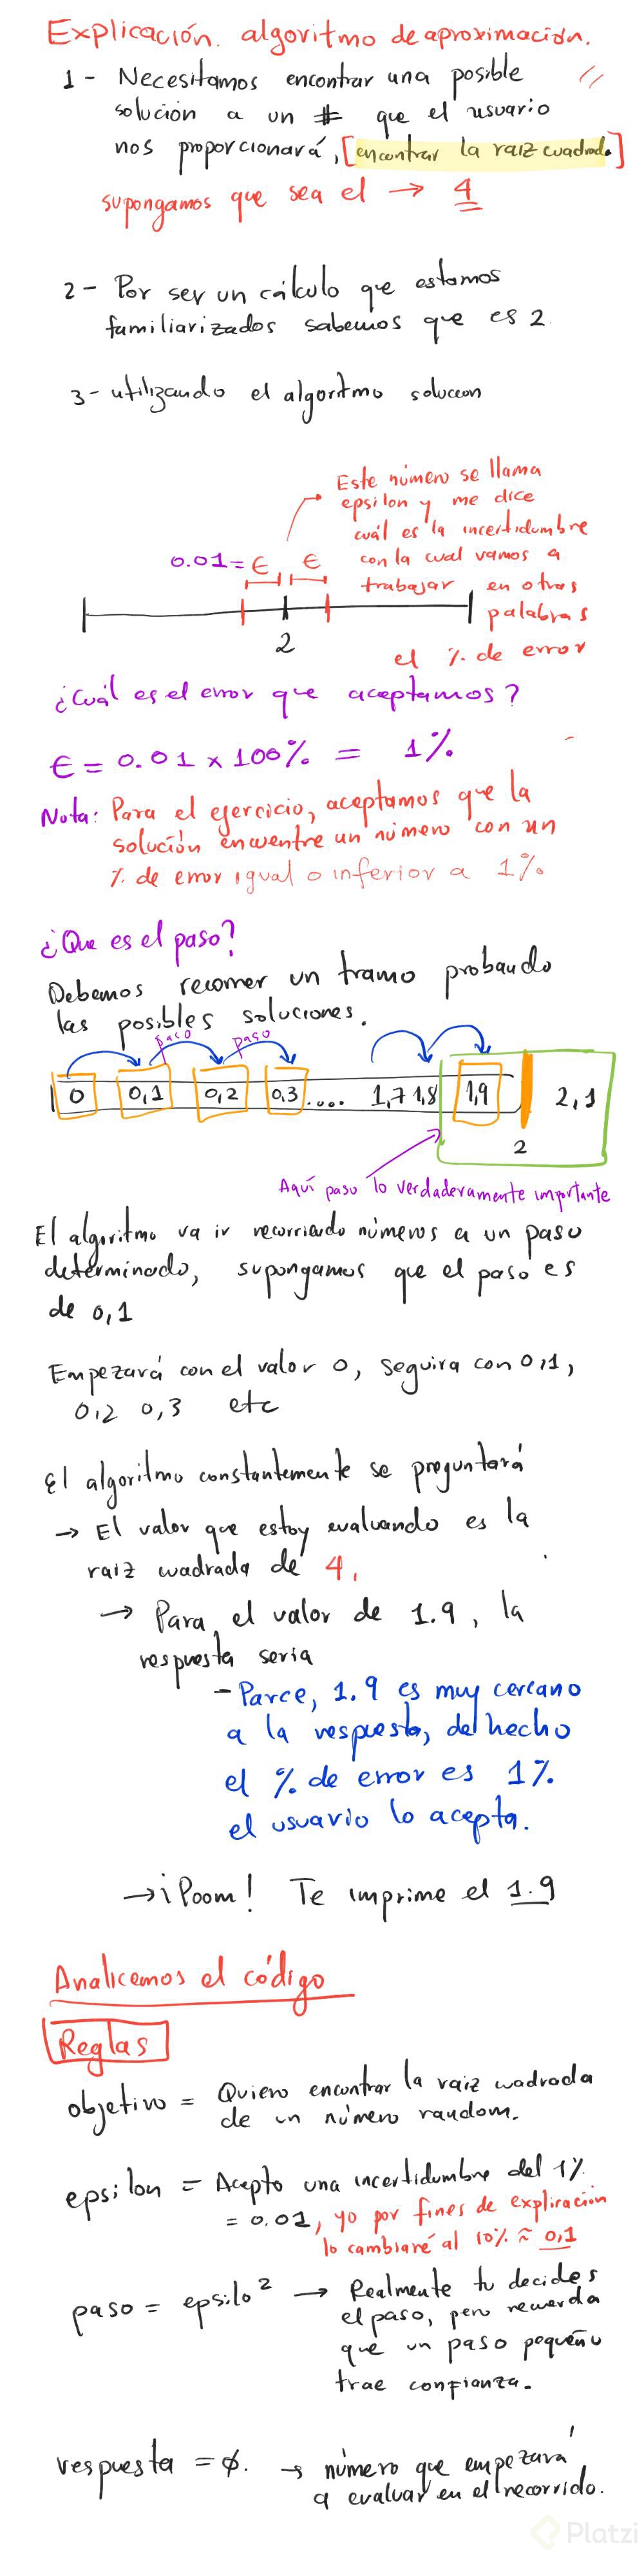 Explicación. algoritmo de aproximación.
1 - Necesitamos encontrar una posible
solución a un # que el usuario
nos proporcionará, [encontrar la raiz cuadrada]
supongamos que sea el → 4
2 - Por ser un cálculo que estamos
familiarizados sabemos que es 2.
3 - utilizando el algoritmo solucion
Este número se llama
epsilon y me dice
cuál es la incertidumbre
con la cual vamos a
trabajar en otras
palabras
el % de error
0.01 = ϵ ϵ
2
¿Cuál es el error que aceptamos?
ϵ = 0.01 x 100% = 1%
Nota: Para el ejercicio, aceptamos que la
solución encuentre un número con un
% de error igual o inferior a 1%.
¿Que es el paso?
Debemos recorrer un tramo probando
las posibles soluciones.
paso paso
0 0,1 0,2 0,3 .... 1,7 1,8 1,9 2,1
2
Aquí paso lo verdaderamente importante
El algoritmo va ir recorriendo números a un paso
determinado, supongamos que el paso es
de 0,1
Empezará con el valor 0, seguira con 0,1,
0,2 0,3 etc
El algoritmo constantemente se preguntará
→ El valor que estoy evaluando es la
raiz cuadrada de 4.
→ Para el valor de 1.9, la
respuesta seria
- Parce, 1.9 es muy cercano
a la respuesta, de hecho
el % de error es 1%
el usuario lo acepta.
→ ¡Poom! Te imprime el 1.9
Analicemos el código
Reglas
objetivo = Quiero encontrar la raiz cuadrada
de un número random.
epsilon = Acepto una incertidumbre del 1%
= 0.01, yo por fines de explicación
lo cambiaré al 10% ≈ 0,1
paso = epsilo² → Realmente tu decides
el paso, pero recuerda
que un paso pequeño
trae confianza.
respuesta = ϕ. → número que empezará
a evaluar en el recorrido.
Platzi